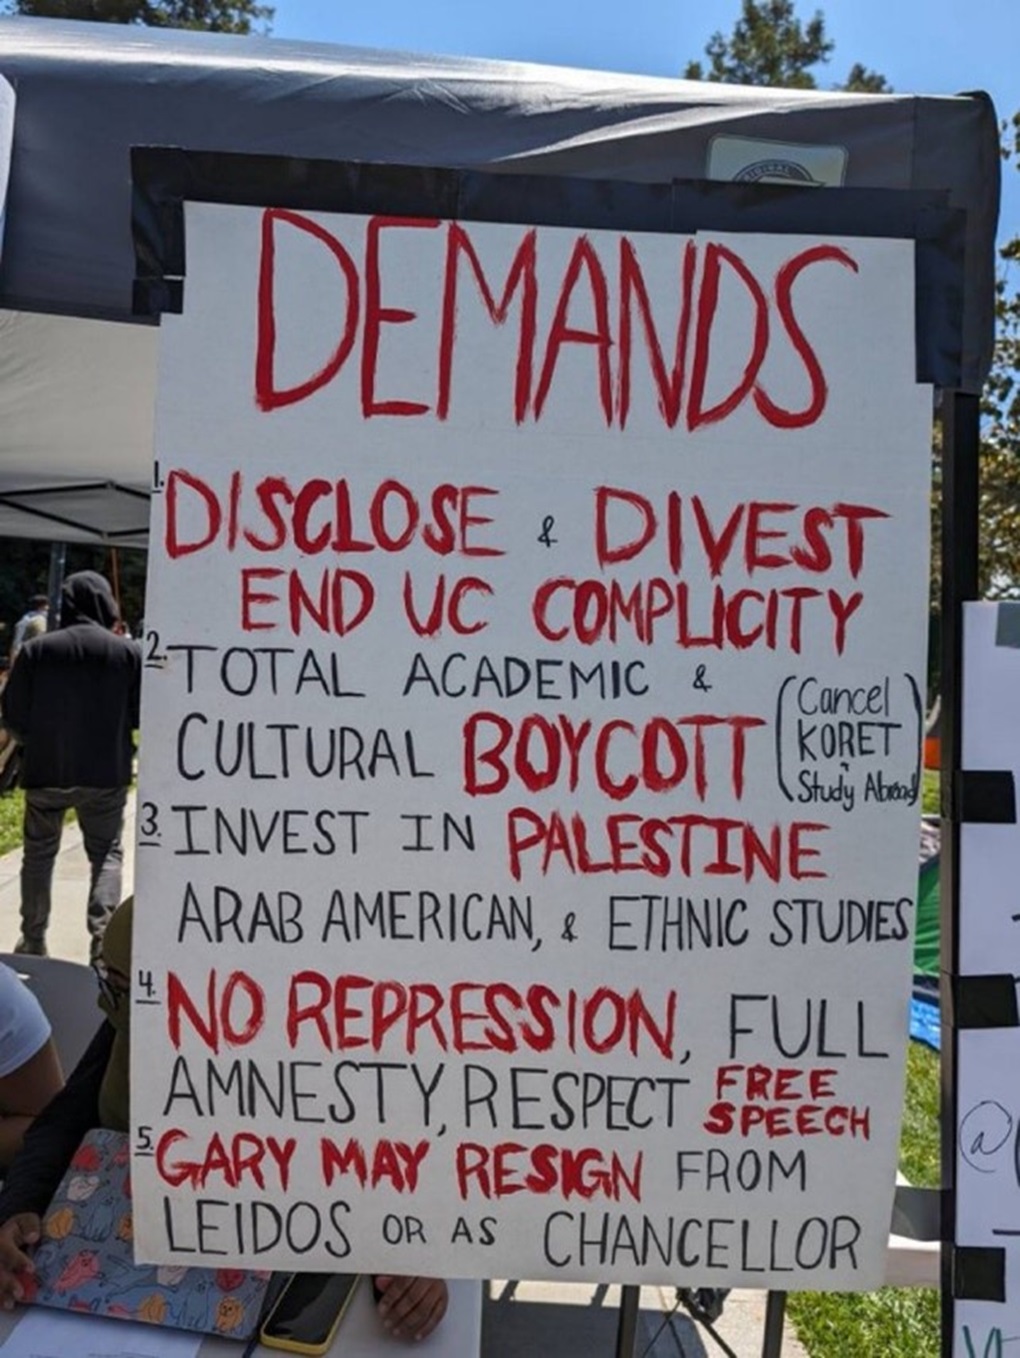 DEMANDS
1. DISCLOSE & DIVEST
END UC COMPLICITY
2. TOTAL ACADEMIC &
CULTURAL BOYCOTT (Cancel
KORET
Study Abroad)
3. INVEST IN PALESTINE
ARAB AMERICAN, & ETHNIC STUDIES
4. NO REPRESSION, FULL
AMNESTY, RESPECT FREE
SPEECH
5. GARY MAY RESIGN FROM
LEIDOS OR AS CHANCELLOR
@